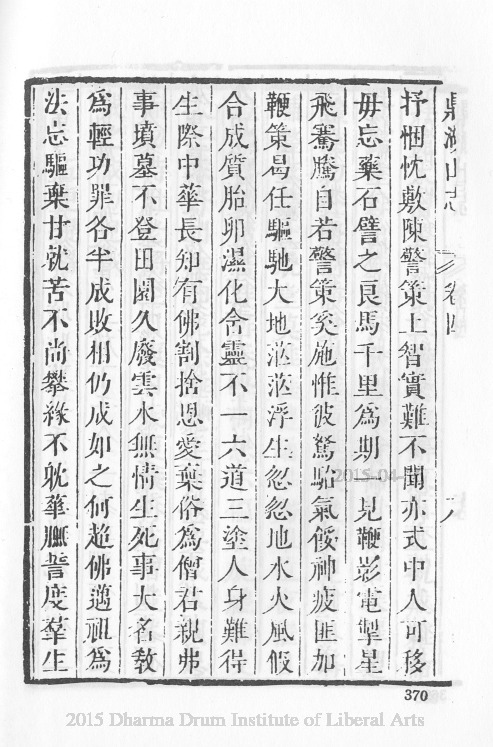 鼎湖山志 卷四 八
抒悃忱敷陳警策上智實難不聞亦式中人可移
毋忘藥石譬之良馬千里為期一見鞭影電掣星
飛騫騰自若警策奚施惟彼駑駘氣餒神疲匪加
鞭策曷任驅馳大地茫茫浮生忽忽地水火風假
合成質胎卵濕化含靈不一六道三塗人身難得
生際中華長知有佛割捨恩愛棄俗為僧君親弗
事墳墓不登田園久廢雲水無情生死事大名教
為輕功罪各半成敗相仍成如之何超佛邁祖為
法忘驅棄甘就苦不尚攀緣不躭華膴誓度羣生
370
2015-04-
2015 Dharma Drum Institute of Liberal Arts